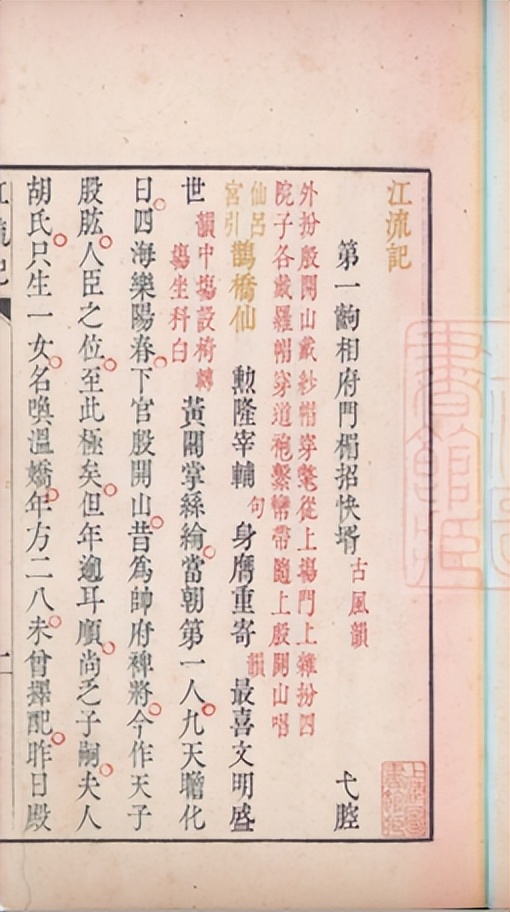 江流記
第一齣相府門楣招快壻 古風韻 弋腔
外扮殷開山戴紗帽穿氅從上塲門上雜扮四
院子各戴羅帽穿道袍繫鸞帶隨上殷開山唱
仙呂宮引 鵲橋仙 勲隆宰輔 句 身膺重寄 韻 最喜文明盛
世 韻中塲設椅轉塲坐科白 黃閣掌絲綸當朝第一人九天瞻化
日四海樂陽春下官殷開山昔為帥府裨將今作天子
股肱人臣之位至此極矣但年逾耳順尚乏子嗣夫人
胡氏只生一女名喚溫嬌年方二八未曾擇配昨日殿
江流記 一